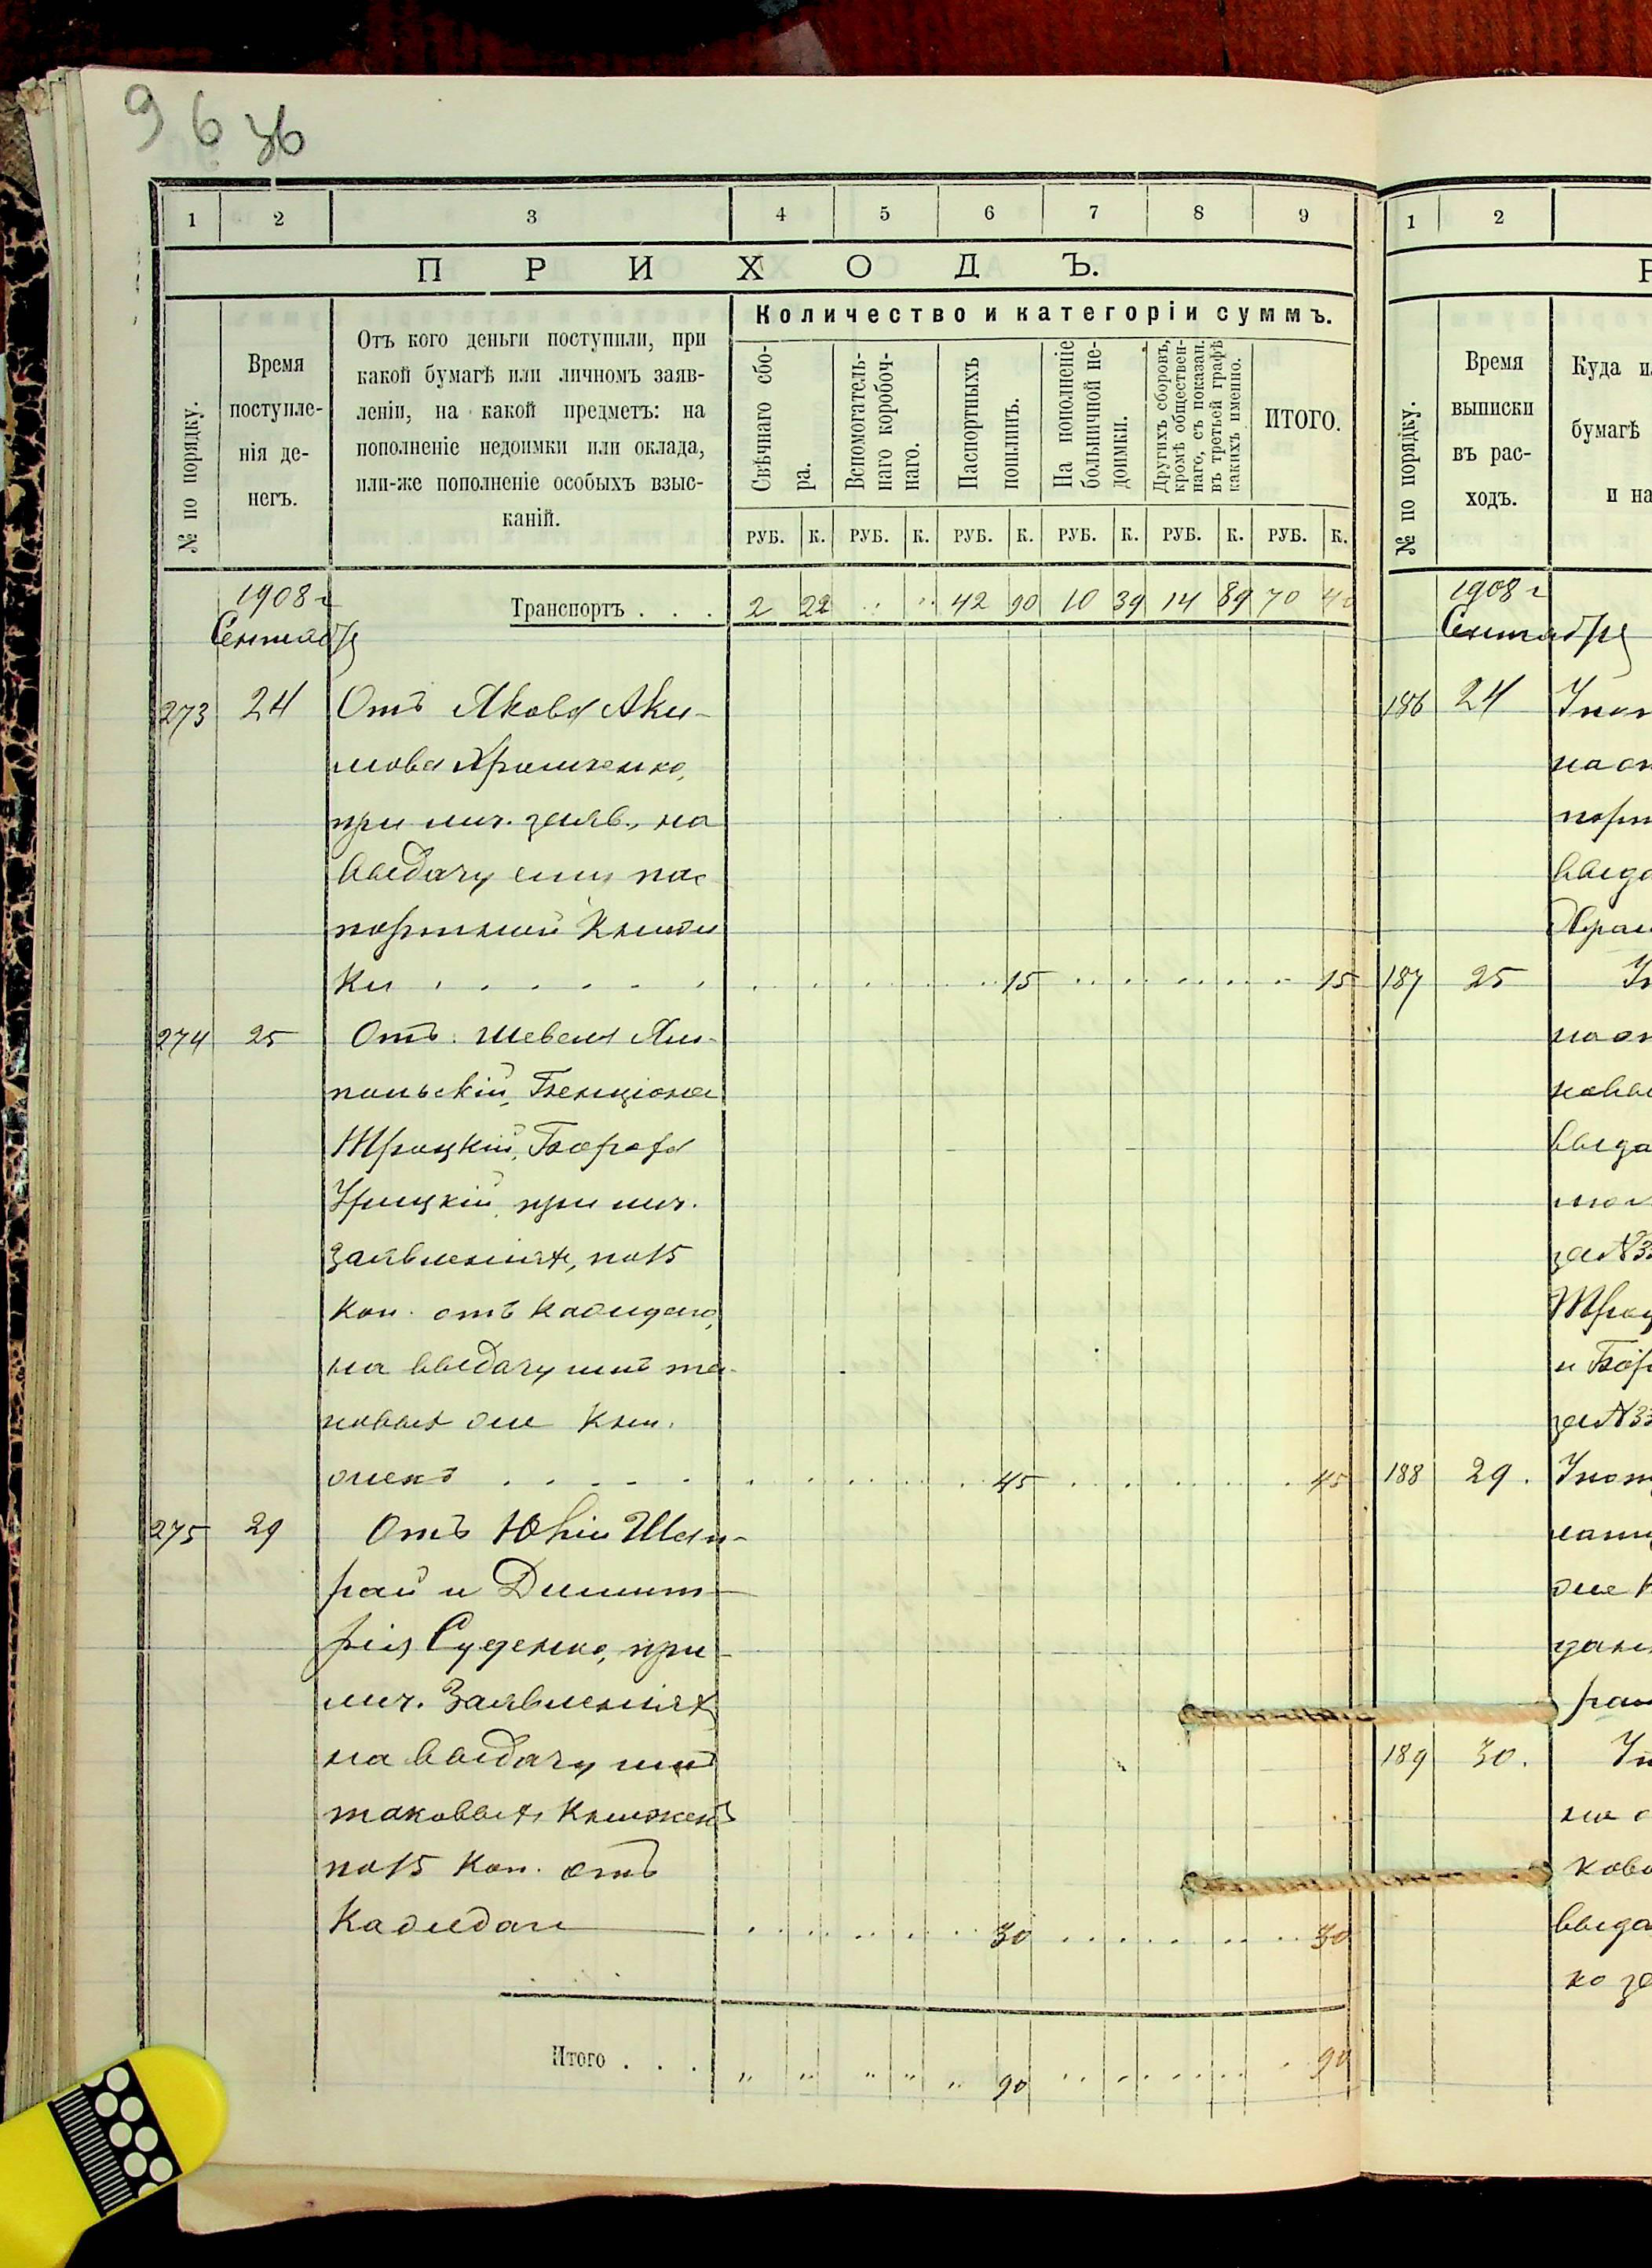 96 36
1 2 3 4 5 6 7 8 9
ПРИХОДЪ.
№ по порядку.
Время
поступле-
нія де-
негъ.
Отъ кого деньги поступили, при
какой бумагѣ или личномъ заяв-
леніи, на какой предметъ: на
пополненіе недоимки или оклада,
или-же пополненіе особыхъ взыс-
каній.
Количество и категоріи суммъ.
Свѣчнаго сбо-
ра.
Вспомогатель-
наго коробоч-
наго.
Паспортныхъ
пошлинъ.
На пополненіе
больничной не-
доимки.
Другихъ сборовъ,
кромѣ обществен-
наго, съ показан.
въ третьей графѣ
какихъ именно.
ИТОГО.
РУБ. К. РУБ. К. РУБ. К. РУБ. К. РУБ. К. РУБ. К.
1908 г
Сентябр
Транспортъ . . . 2 22 " " 42 90 10 39 14 89 70 40
273 24 Отъ Якова Аки-
мова
при лич. заяв., на
выдачу ему пас
портной Книж
ки . . . . . . 15 . . . 15
274 25 Отъ: Шевеля Ям-
польскій, Бенціона
Троцкій,
Урицкій при лич.
Заявленіях, по 15
Коп. отъ каждаго,
на выдачу имъ та-
ковых же Кни.
жекъ . . . . . 45 . . . 45
275 29 Отъ Юрія Шап-
рай и Димит-
рія Суденко, при
лич. Заявленіях
на выдачу имъ
таковых Книжекъ
по 15 Коп. отъ
Каждаг 30 . . . 30
Итого . . . " " " " " 90 . . . 90
1 2
Р
№ по порядку.
Время
выписки
въ рас-
ходъ.
Куда и
бумагѣ
и на
1908 г
Сентябр
186 24
187 25
188 29.
189 30.